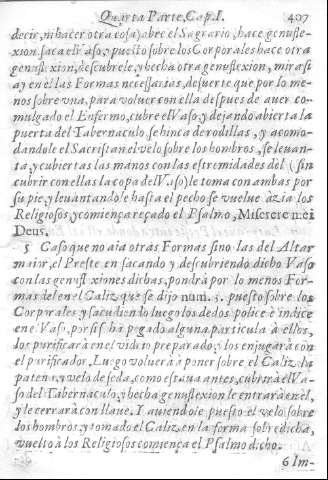 Quarta Parte, Cap. I. 407
decir, ni hacer otra cosa) sobre el Sagrario, hace genufle-
xion, saca el Vaso, y puesto sobre los Corporales hace otra
genuflexion, descubrele, y hecha otra genuflexion, mira si
ay en èl las Formas necessarias, de suerte que por lo me-
nos sobre vna, para volver con ella despues de auer co-
mulgado el Enfermo, cubre el Vaso, y dejando abierta la
puerta del Tabernaculo, se hinca de rodillas, y acomo-
dandole el Sacristan el velo sobre los hombros, se leuan-
ta, y cubiertas las manos con las estremidades del (sin
cubrir con ellas la copa del Vaso) le toma con ambas por
su pie, y leuantandole hasta el pecho se vuelue àzia los
Religiosos y comiença reçado el Psalmo, Miserere mei
Deus.
5 Caso que no aia otras Formas sino las del Altar
maior, el Preste en sacando y descubriendo dicho Vaso
con las genuflexiones dichas, pondrà por lo menos For-
mas del en el Caliz que se dijo num. 3. puesto sobre los
Corporales y sacudiendo luego los dedos police è indice
en el Vaso, por si se hà pegado alguna particula à ellos,
los purificarà en el vidrio preparado, y los enjugarà con
el purificador. Luego voluerà à poner sobre el Caliz la
patena, y velo de seda, como estaua antes, cubrirà el Va-
so del Tabernaculo, y hecha genuflexion le entrarà en el,
y le cerrarà con llaue. Y auiendole puesto el velo sobre
los hombros, y tomado el Caliz en la forma sobredicha,
vuelto à los Religiosos comiença el Psalmo dicho.
6 Im-